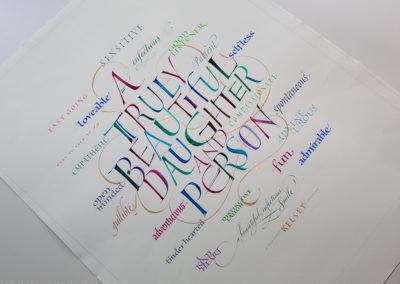 SENSITIVE
infectious
GOOD
LISTENER
Patient
selfless
EASY GOING
Loveable
EMPATHETIC
A
TRULY
BEAUTIFUL
DAUGHTER
AND
PERSON
COMPASSIONATE
spontaneous
open
minded
gullible
adventurous
tender hearted
KIND
HEART
a beautiful, infectious
Smile
fun
admirable
KELSEY